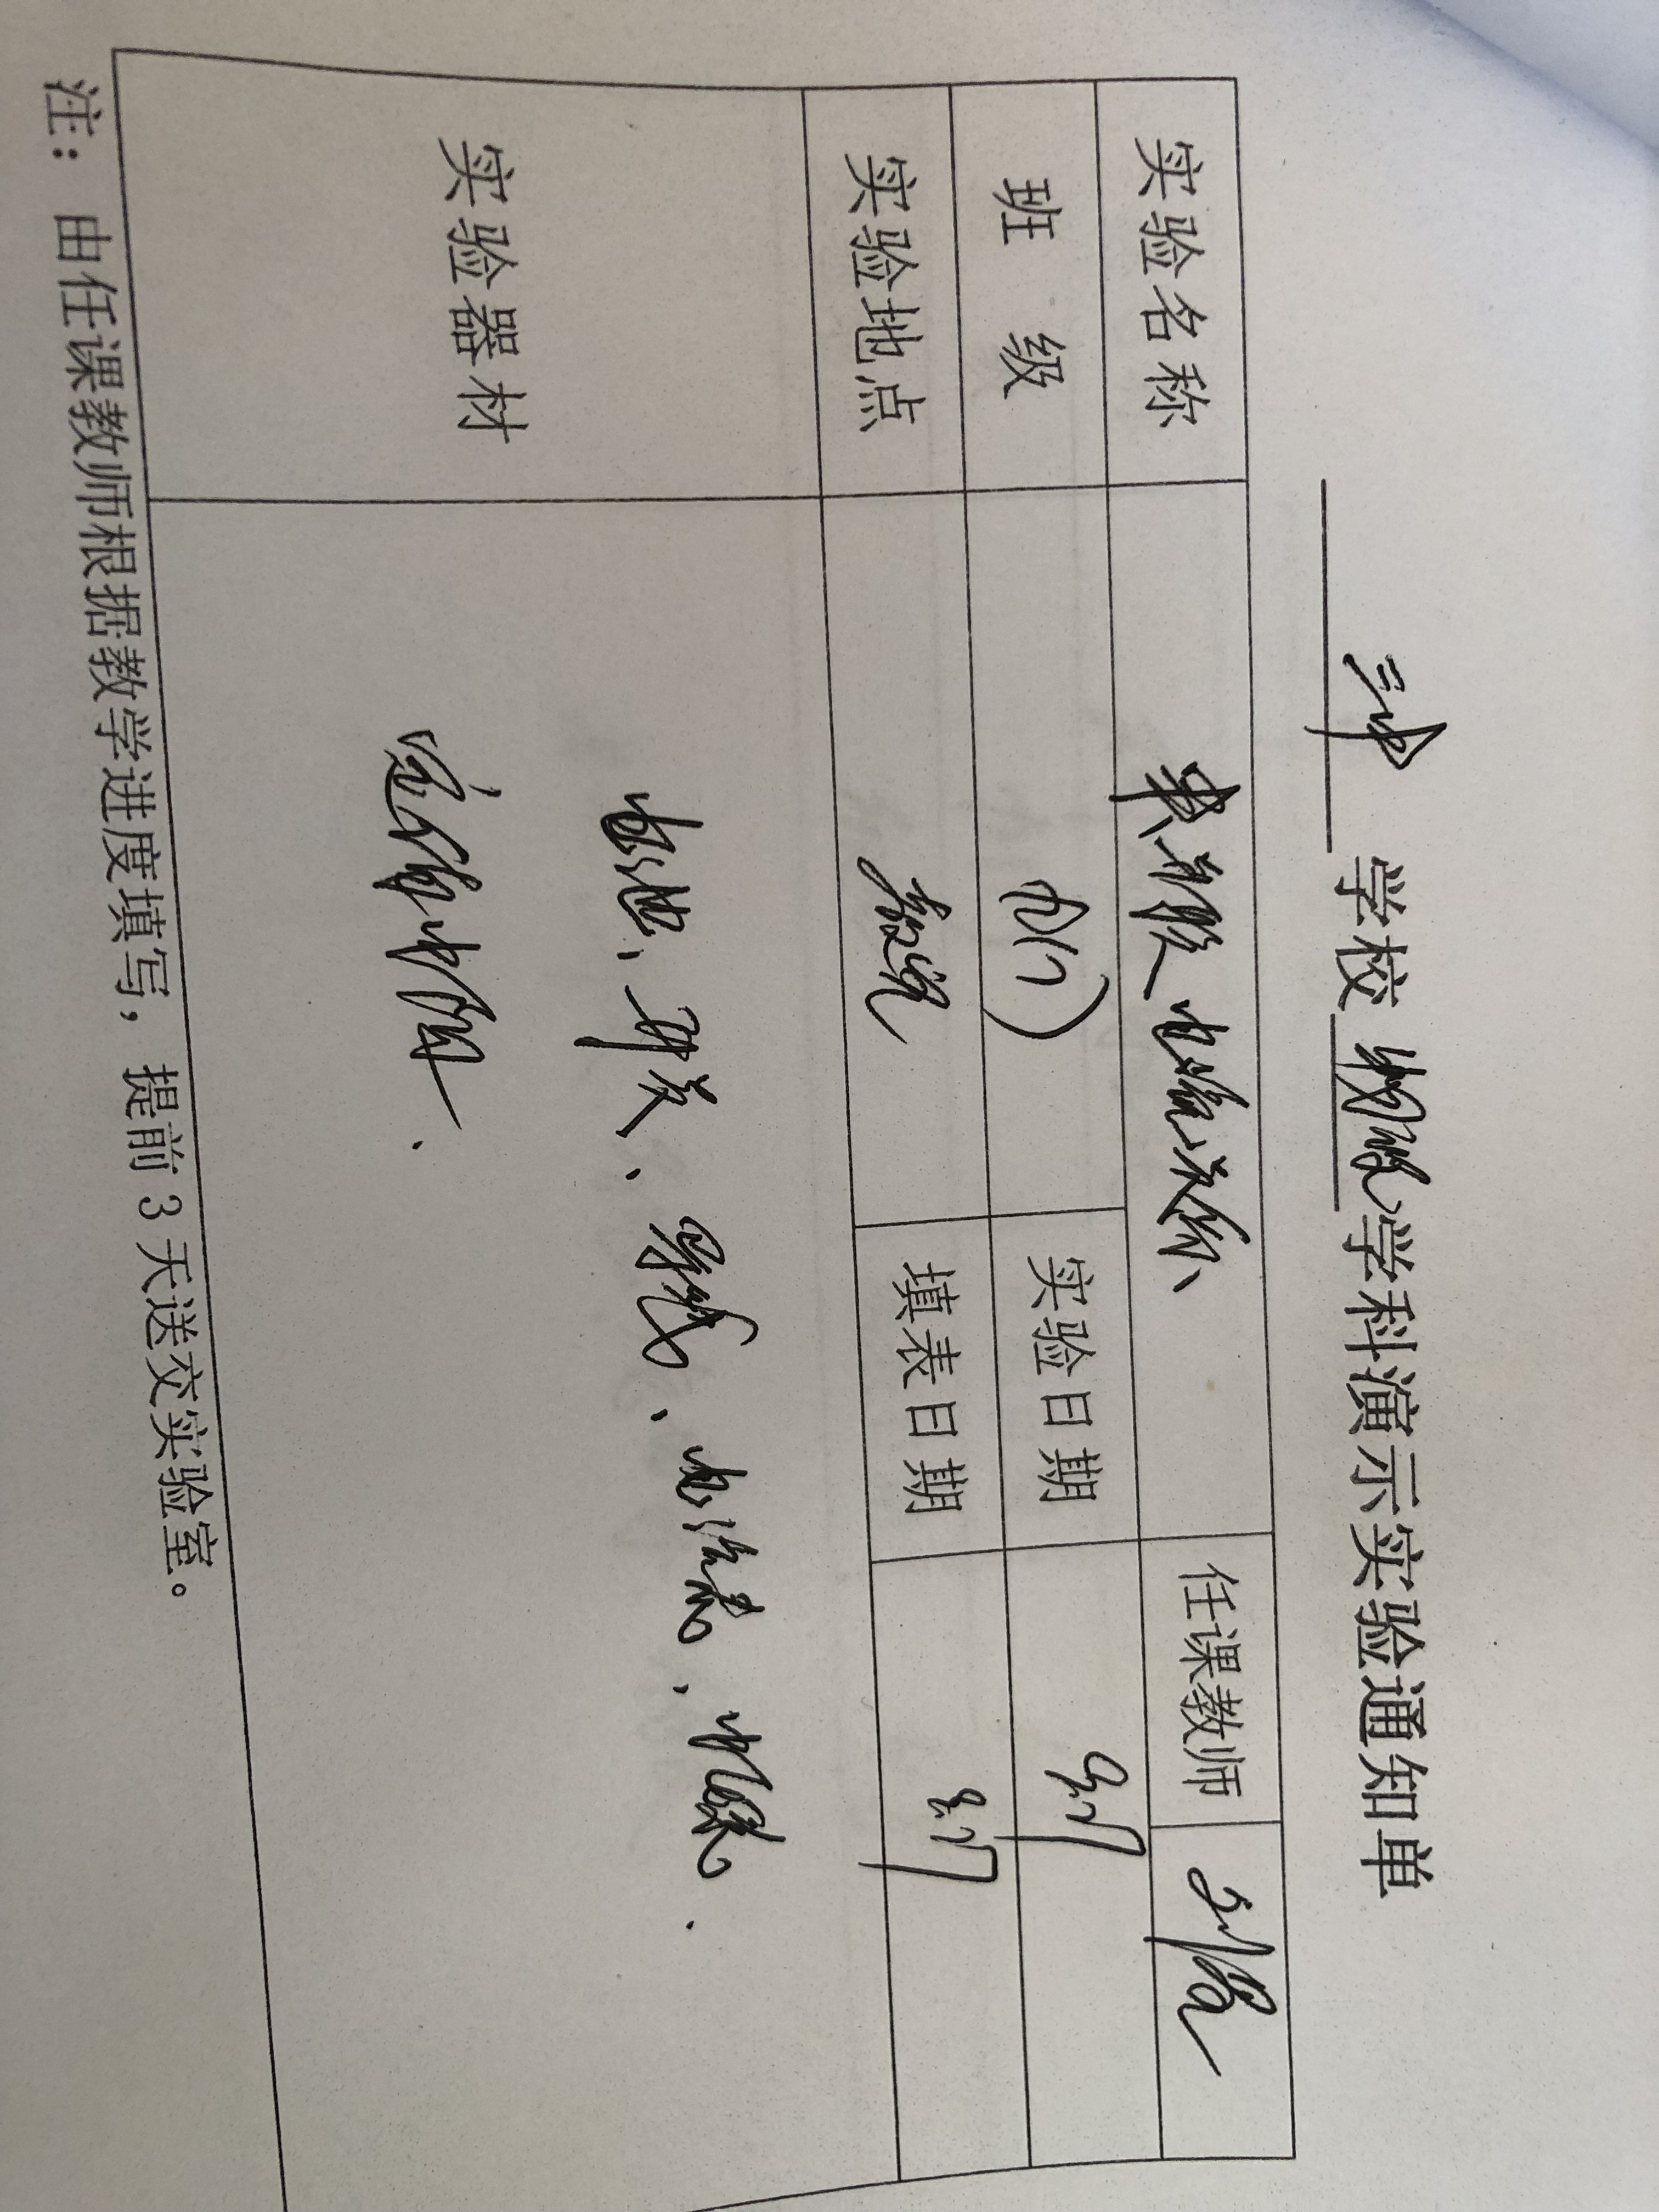 三中 学校 物理 学科演示实验通知单
实验名称 电流 任课教师
班 级 九(1) 实验日期 9.17
实验地点 教室 填表日期
实验器材 电池、开关、导线、电流表、电压表、
定值电阻.
注:由任课教师根据教学进度填写,提前 3 天送交实验室。